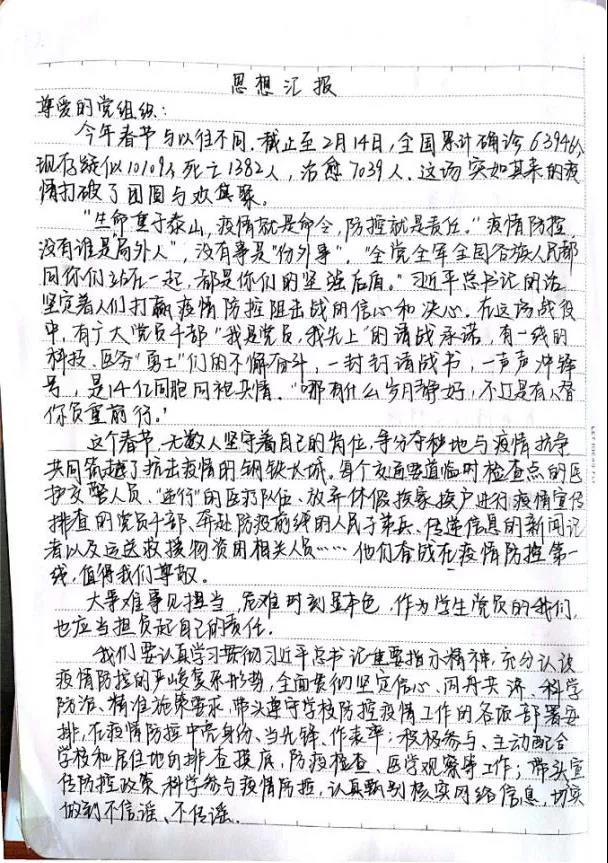 思想汇报
尊爱的党组织:
今年春节与以往不同.截止至2月14日,全国累计确诊63946人
现存疑似10109人死亡1382人,治愈7039人.这场突如其来的疫
情打破了团圆与欢集聚。
"生命重于泰山,疫情就是命令,防控就是责任。"疫情防控,
没有谁是局外人",没有事是"份外事"."全党全军全国各族人民都
同你们站在一起,都是你们的坚强后盾。"习近平总书记的话
坚定着人们打赢疫情防控阻击战的信心和决心.在这场战役
中,有广大党员干部"我是党员,我先上"的请战承诺,有一线的
科技、医务"勇士"们的不懈奋斗,一封封请战书,一声声冲锋
号,是14亿同胞同袍共情."哪有什么岁月静好,不过是有人替
你负重前行。"
这个春节,无数人坚守着自己的岗位,争分夺秒地与疫情抗争
共同筑起了抗击疫情的钢铁长城.每个交通要道临时检查点的医
护交警人员、"逆行"的医疗队伍、放弃休假挨家挨户进行疫情宣传
排查的党员干部、奔赴防疫前线的人民子弟兵、传递信息的新闻记
者以及运送救援物资的相关人员……他们奋战在疫情防控第一
线,值得我们尊敬。
大事难事见担当,危难时刻显本色.作为学生党员的我们,
也应当担负起自己的责任.
我们要认真学习贯彻习近平总书记重要指示精神,充分认识
疫情防控的严峻复杂形势,全面贯彻坚定信心、同舟共济、科学
防治、精准施策要求,带头遵守学校防控疫情工作的各项部署安
排,在疫情防控中亮身份、当先锋、作表率;积极参与、主动配合
学校和居住地的排查摸底,防疫检查、医学观察等工作;带头宣
传防控政策,科学参与疫情防控,认真甄别核实网络信息,切实
做到不信谣、不传谣.